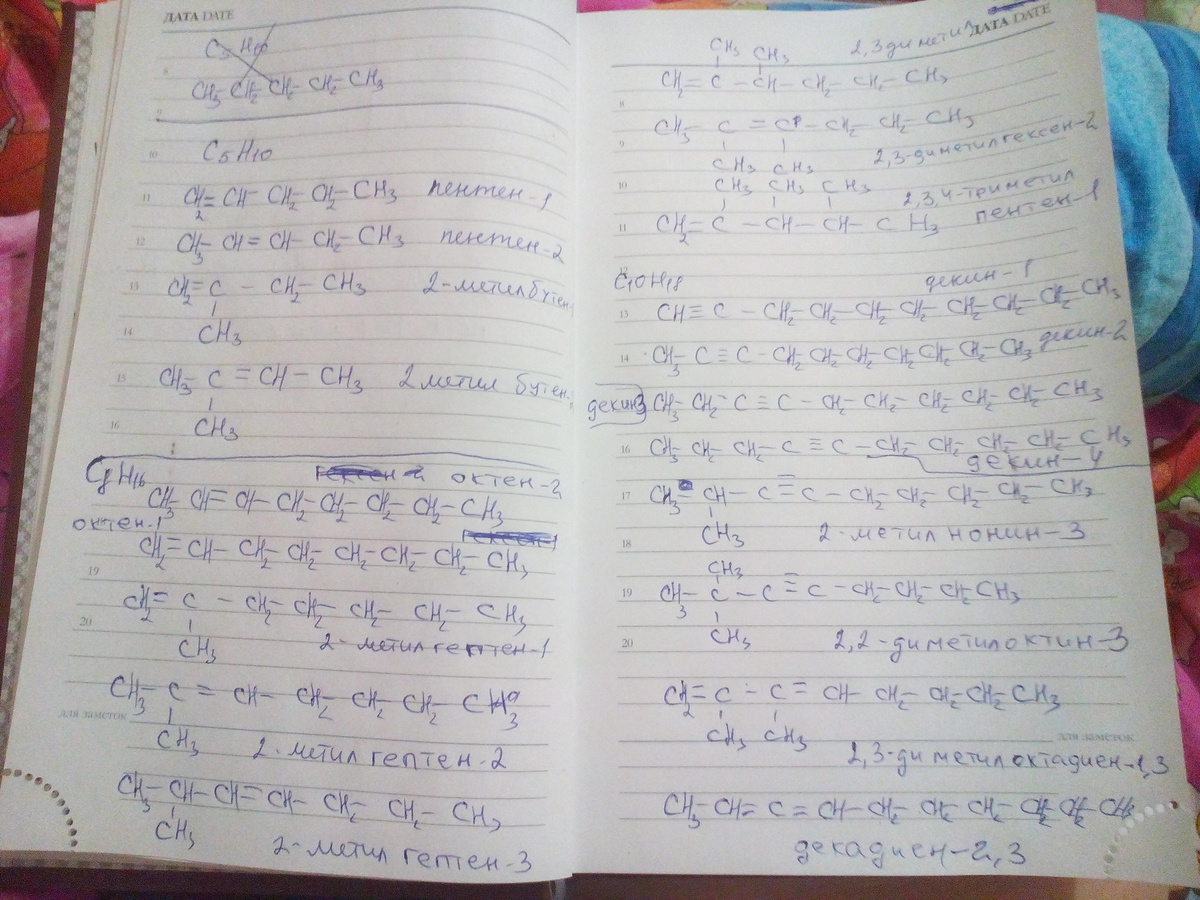 ДАТА DATE
C5H10
8
CH3 CH2 CH2 – CH2 – CH3
9
10 C5H10
11 CH2=CH – CH2 – CH2 – CH3 пентен-1
12 CH3 – CH = CH – CH2 – CH3 пентен-2
13 CH2=C – CH2 – CH3 2-метилбутен-1
14 CH3
15 CH3 – C = CH – CH3 2 метил бутен-
16 CH3
C8H16 октен-2
CH3 CH = CH – CH2 – CH2 – CH2 – CH2 – CH3
октен-1
CH2 = CH – CH2 – CH2 – CH2 – CH2 – CH2 – CH3
19
CH2 = C – CH2 – CH2 – CH2 – CH2 – CH3
20
CH3 2-метилгептен-1
CH3 – C = CH – CH2 – CH2 – CH2 – CH3
для заметок
CH3 2-метил гептен-2
CH3 – CH – CH = CH – CH2 – CH2 – CH3
CH3
2-метил гептен-3
ДАТА DATE
CH3 CH3 2,3 диметил
CH2 = C – CH – CH2 – CH2 – CH3
8
CH3 C = C – CH2 – CH2 – CH3
9
CH3 CH3 2,3-диметилгексен-2
10 CH3 CH3 CH3
2,3,4-триметил
11 CH2 = C – CH – CH – CH3 пентен-1
C10H18 декин-1
13 CH ≡ C – CH2 – CH2 – CH2 – CH2 – CH2 – CH2 – CH2 – CH3
14 CH3 C ≡ C – CH2 – CH2 – CH2 – CH2 – CH2 – CH2 – CH3 декин-2
декин3 CH3 – CH2 – C ≡ C – CH2 – CH2 – CH2 – CH2 – CH2 – CH3
16 CH3 – CH2 – CH2 – C ≡ C – CH2 – CH2 – CH2 – CH2 – CH3
декин-4
17 CH3 CH – C ≡ C – CH2 – CH2 – CH2 – CH2 – CH3
18 CH3 2-метил нонин-3
CH3
19 CH3 – C – C ≡ C – CH2 – CH2 – CH2 – CH3
20 CH3 2,2-диметилоктин-3
CH2 = C – C = CH – CH2 – CH2 – CH2 – CH3
CH3 CH3
для заметок
2,3-диметилоктадиен-1,3
CH3 – CH = C = CH – CH2 – CH2 – CH2 – CH2 – CH2 – CH3
декадиен-2,3